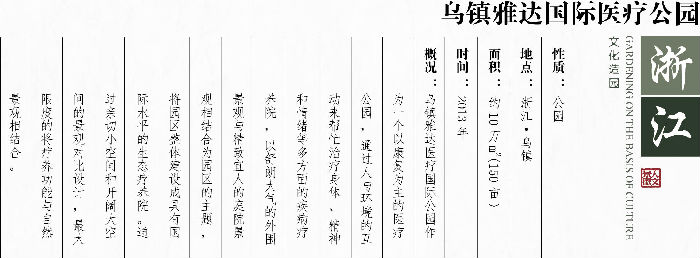 乌镇雅达国际医疗公园
浙江
GARDENING ON THE BASIS OF CULTURE
文化造园
性质：公园
地点：浙江·乌镇
面积：约10万㎡(150亩)
时间：2013年
概况：乌镇雅达医疗国际公园作
为一个以康复为主的医疗
公园，通过人与环境的互
动来帮忙治疗身体、精神
和情绪等多方面的疾病疗
养院，以舒朗大气的外围
景观与精致宜人的庭院景
观相结合为园区的主题，
将园区整体建设成具有国
际水平的生态疗养院。通
过亲切小空间和开阔大空
间的景观对比设计，最大
限度的将疗养功能与自然
景观相结合。